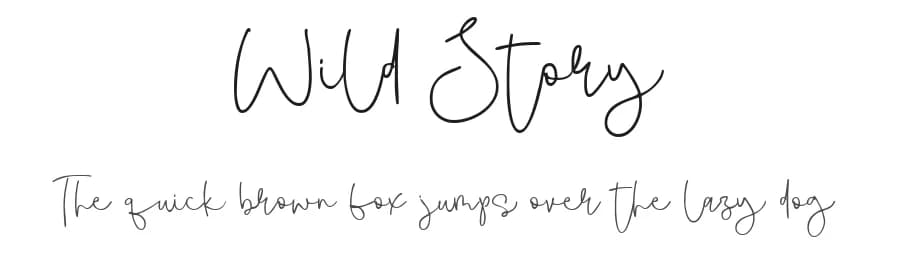 Wild Story
The quick brown fox jumps over the lazy dog